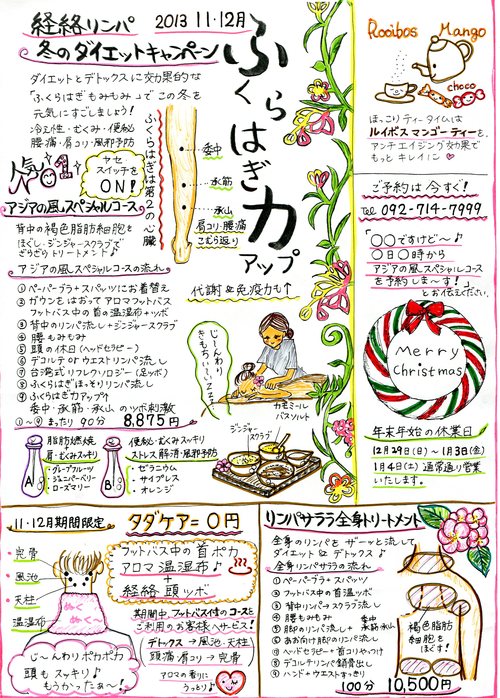 経絡リンパ
2013 11・12月
冬のダイエットキャンペーン
ふくらはぎ力アップ
ダイエットとデトックスに効果的な
「ふくらはぎもみもみ」でこの冬を
元気にすごしましょう!
冷え性・むくみ・便秘
腰痛・肩コリ・風邪予防
人気No1
ヤセ
スイッチを
ON!
ふくらはぎは第2の心臓
委中
承筋
承山
肩コリ・腰痛
こむら返り
代謝&免疫力↑
アジアの風スペシャルコース
背中の褐色脂肪細胞を
ほぐし・ジンジャースクラブで
ざらざらトリートメント♪
アジアの風スペシャルコースの流れ
①ペーパーブラ+スパッツにお着替え
②ガウンをはおってアロマフットバス
フットバス中の首の温湿布+ツボ
③背中のリンパ流し+ジンジャースクラブ
④腰もみもみ
⑤頭の休日(ヘッドセラピー)
⑥デコルテorウエストリンパ流し
⑦台湾式リフレクソロジー(足ツボ)
⑧ふくらはぎほっそりリンパ流し
⑨ふくらはぎ力アップ↑
委中・承筋・承山のツボ刺激
①~⑨まったり90分 8,875円
じ~んわり
きもちい~い
zzz
カモミール
バスソルト
ジンジャー
スクラブ
A
脂肪燃焼
肩・むくみスッキリ
・グレープフルーツ
・ジュニパーベリー
・ローズマリー
B
便秘・むくみスッキリ
ストレス解消・風邪予防
・ゼラニウム
・サイプレス
・オレンジ
Rooibos Mango
choco
ほっこりティータイムは
ルイボスマンゴーティーを。
アンチエイジング効果で
もっとキレイに♡
ご予約は今すぐ!
Tel 092-714-7999
「〇〇ですけど~♪
〇日〇時から
アジアの風スペシャルコース
を予約しま~す!」
とお伝えください。
Merry
Christmas
年末年始の休業日
12月29日(日)~1月3日(金)
1月4日(土)通常通り営業
いたします。
11・12月期間限定
タダケア=0円
・完骨
・風池
・天柱
・温湿布
ぬく
ぬく~
じ~んわりポカポカ
頭もスッキリ♪
もうかったぁ~!
フットバス中の首ポカ
アロマ温湿布
+
経絡頭ツボ
期間中、フットバス付のコースを
ご利用のお客様へサービス!
デトックス→風池・天柱
頭痛・肩コリ→完骨
アロマの香りに
うっとり♪
リンパサララ全身トリートメント
全身のリンパをザーッと流して
ダイエット&デトックス♪
全身リンパサララの流れ
①ペーパーブラ+スパッツ
②フットバス中の首温湿布
③背中リンパ→スクラブ流し
④腰もみもみ
⑤脚のリンパ流し+委中承筋承山
⑥あお向け脚のリンパ流し
⑦ヘッドセラピー+首すりやけ
⑧デコルテリンパ鎖骨出し
⑨ハンド+ウエストすっきり
褐色脂肪
細胞を
ほぐす!
100分 10,500円